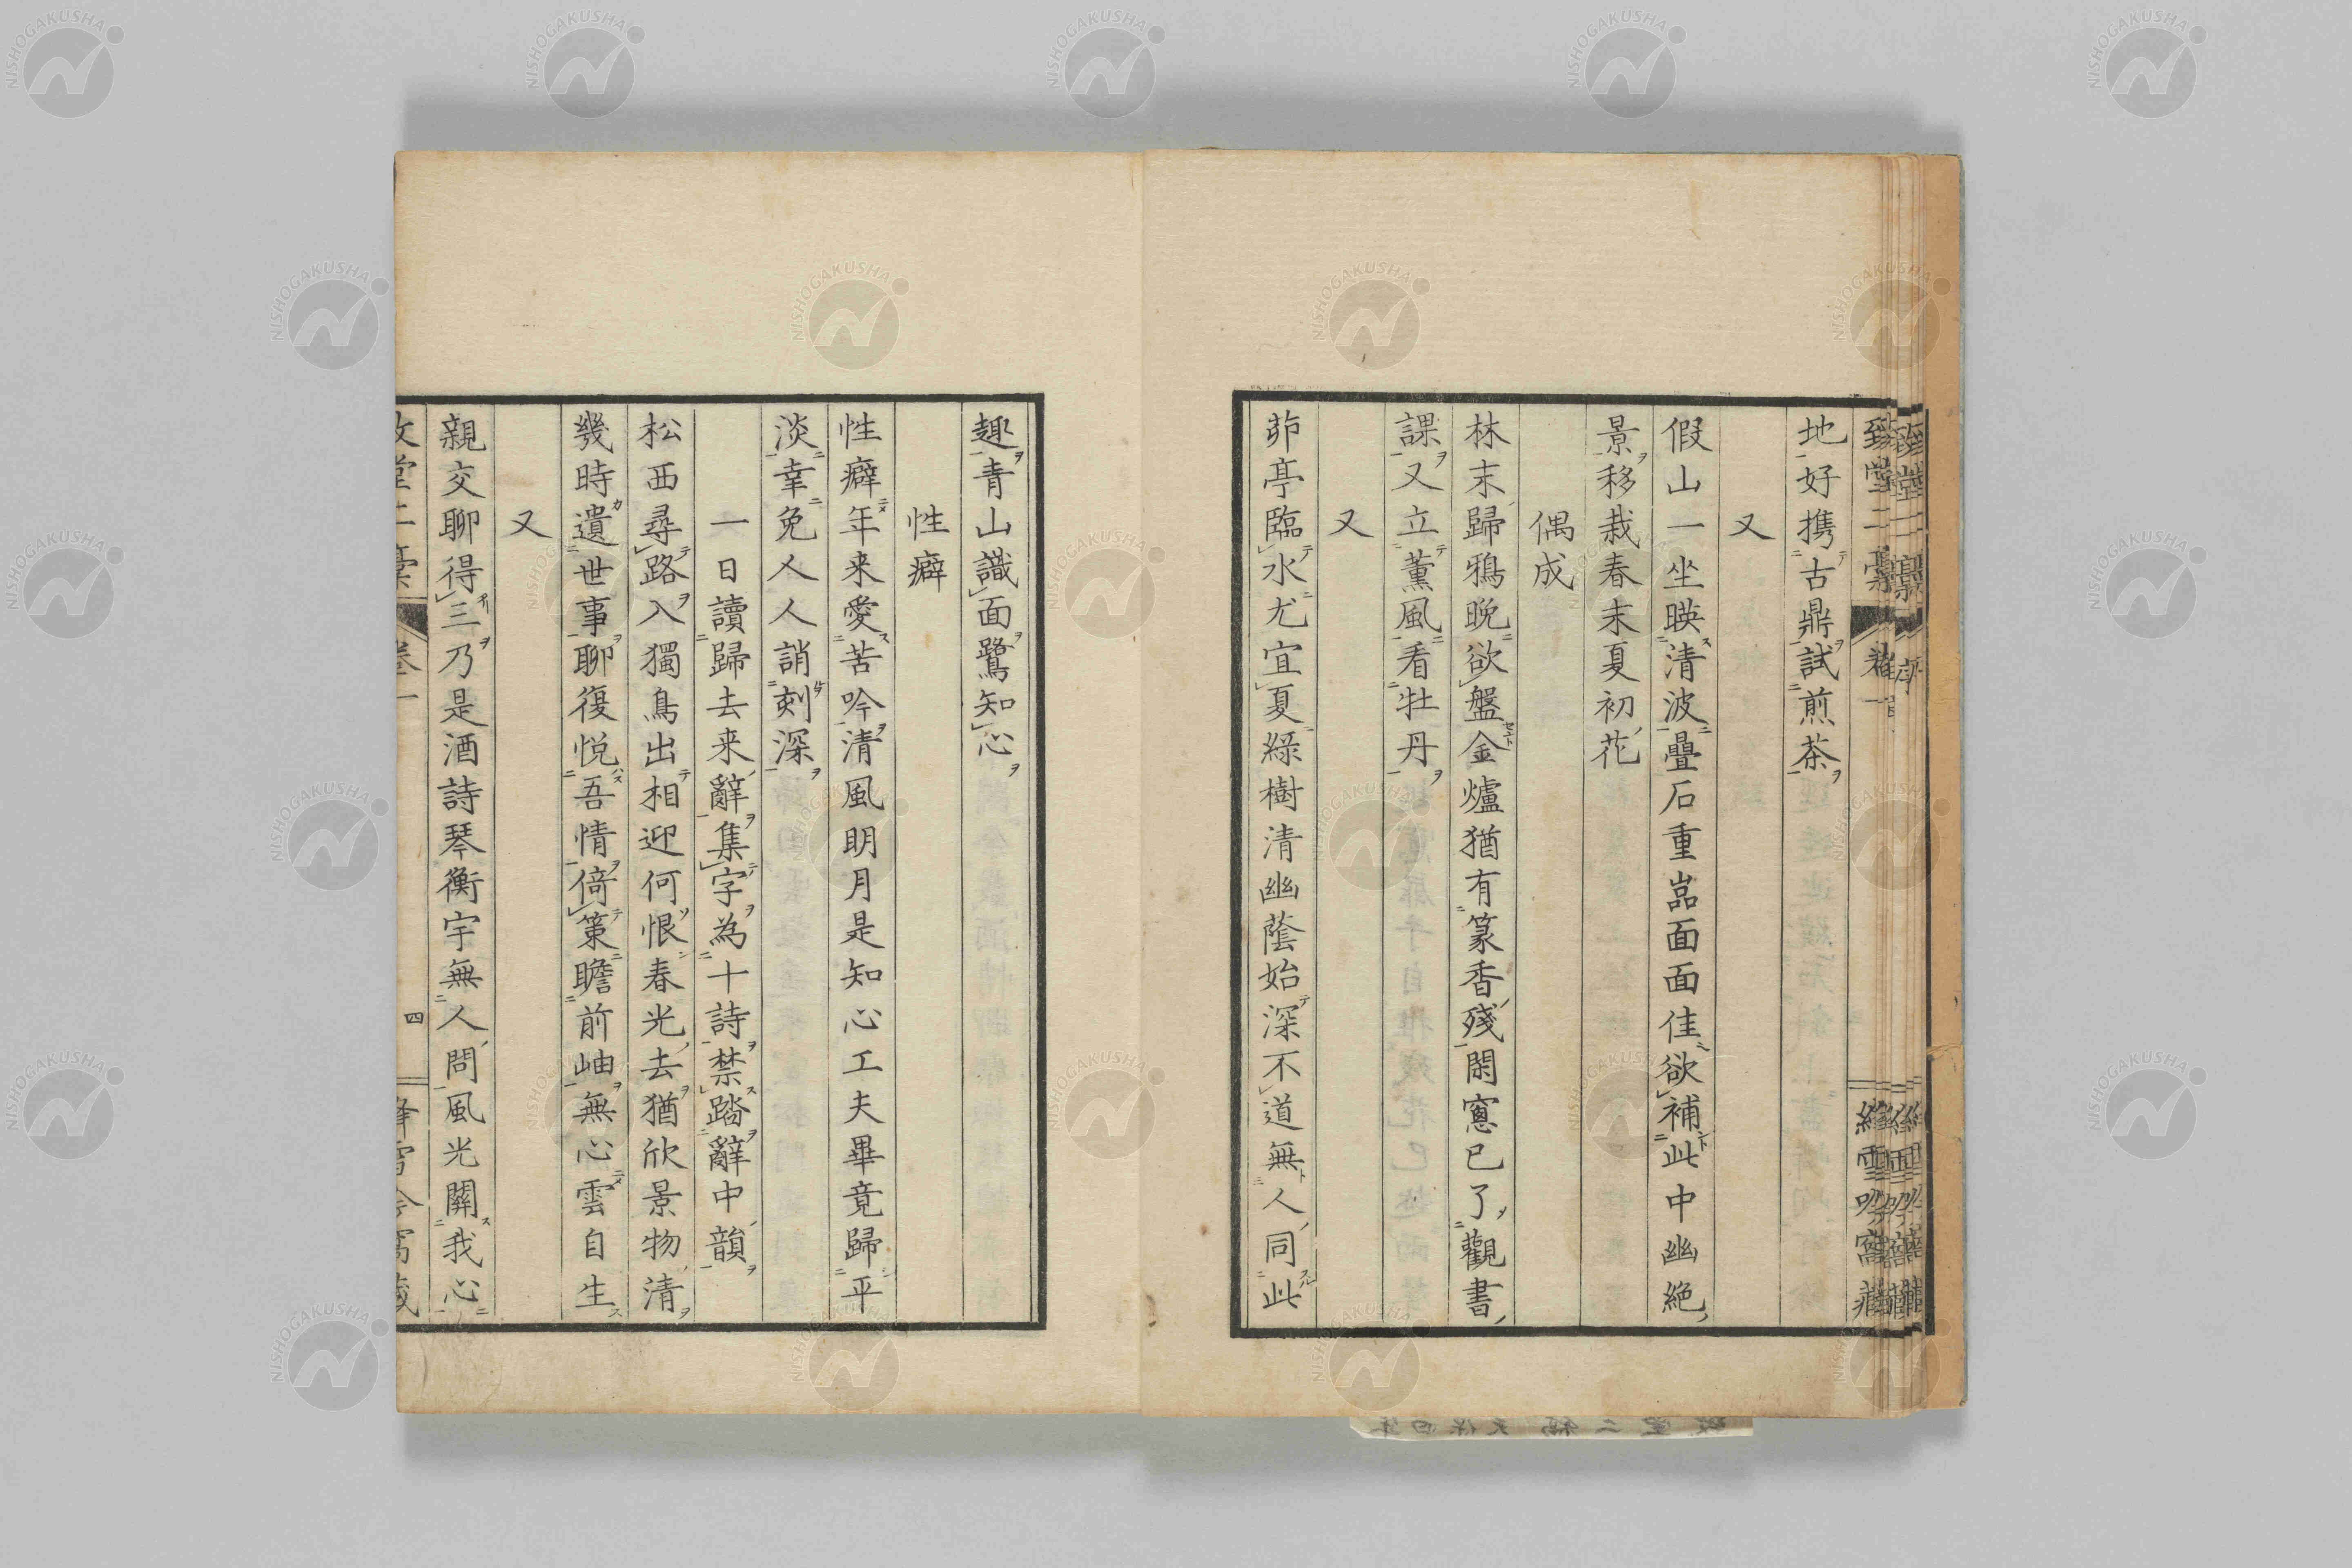 地好携古鼎試煎茶
又
假山一坐暎清波疊石重嵓面面佳欲補此中幽絶
景移栽春末夏初花
偶成
林末歸鴉晩欲盤金爐猶有篆香殘閑窻已了觀書
課又立薰風看牡丹
又
茆亭臨水尤宜夏緑樹清幽蔭始深不道無人同此
趣青山識面鷺知心
性癖
性癖年来愛苦吟清風明月是知心工夫畢竟歸平
淡幸免人人誚刻深
一日讀歸去来辭集字為十詩禁踏辭中韻
松西尋路入獨鳥出相迎何恨春光去猶欣景物清
幾時遺世事聊復悦吾情倚策瞻前岫無心雲自生
又
親交聊得三乃是酒詩琴衡宇無人問風光關我心
四
NISHOGAKUSHA